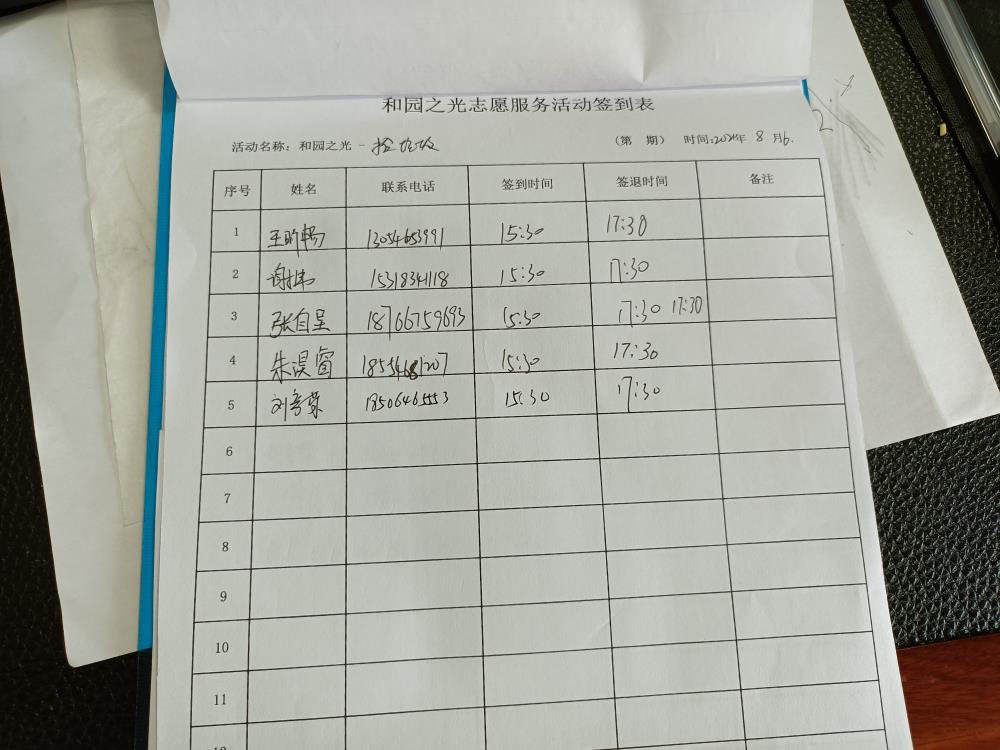 和园之光志愿服务活动签到表
活动名称：和园之光 - 捡垃圾 （第 期） 时间:2024年 8 月6.
序号 姓名 联系电话 签到时间 签退时间 备注
1 王昕畅 15:30 17:30
2 谢 15318341118 15:30 17:30
3 张自呈 18766759693 15:30 17:30 17:30
4 朱 15:30 17:30
5 刘 18506465553 15:30 17:30
6
7
8
9
10
11